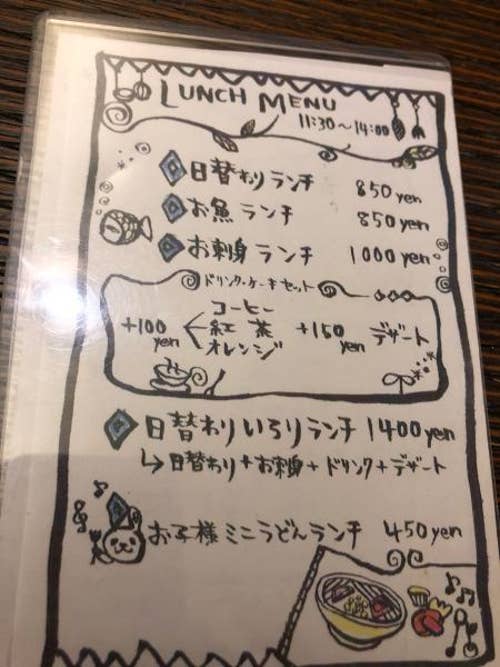 LUNCH MENU
11:30～14:00
日替わりランチ 850yen
お魚ランチ 850yen
お刺身ランチ 1000yen
ドリンク・ケーキセット
+100yen コーヒー 紅茶 オレンジ +150yen デザート
日替わりいろりランチ 1400yen
↳日替わり+お刺身+ドリンク+デザート
お子様ミニうどんランチ 450yen